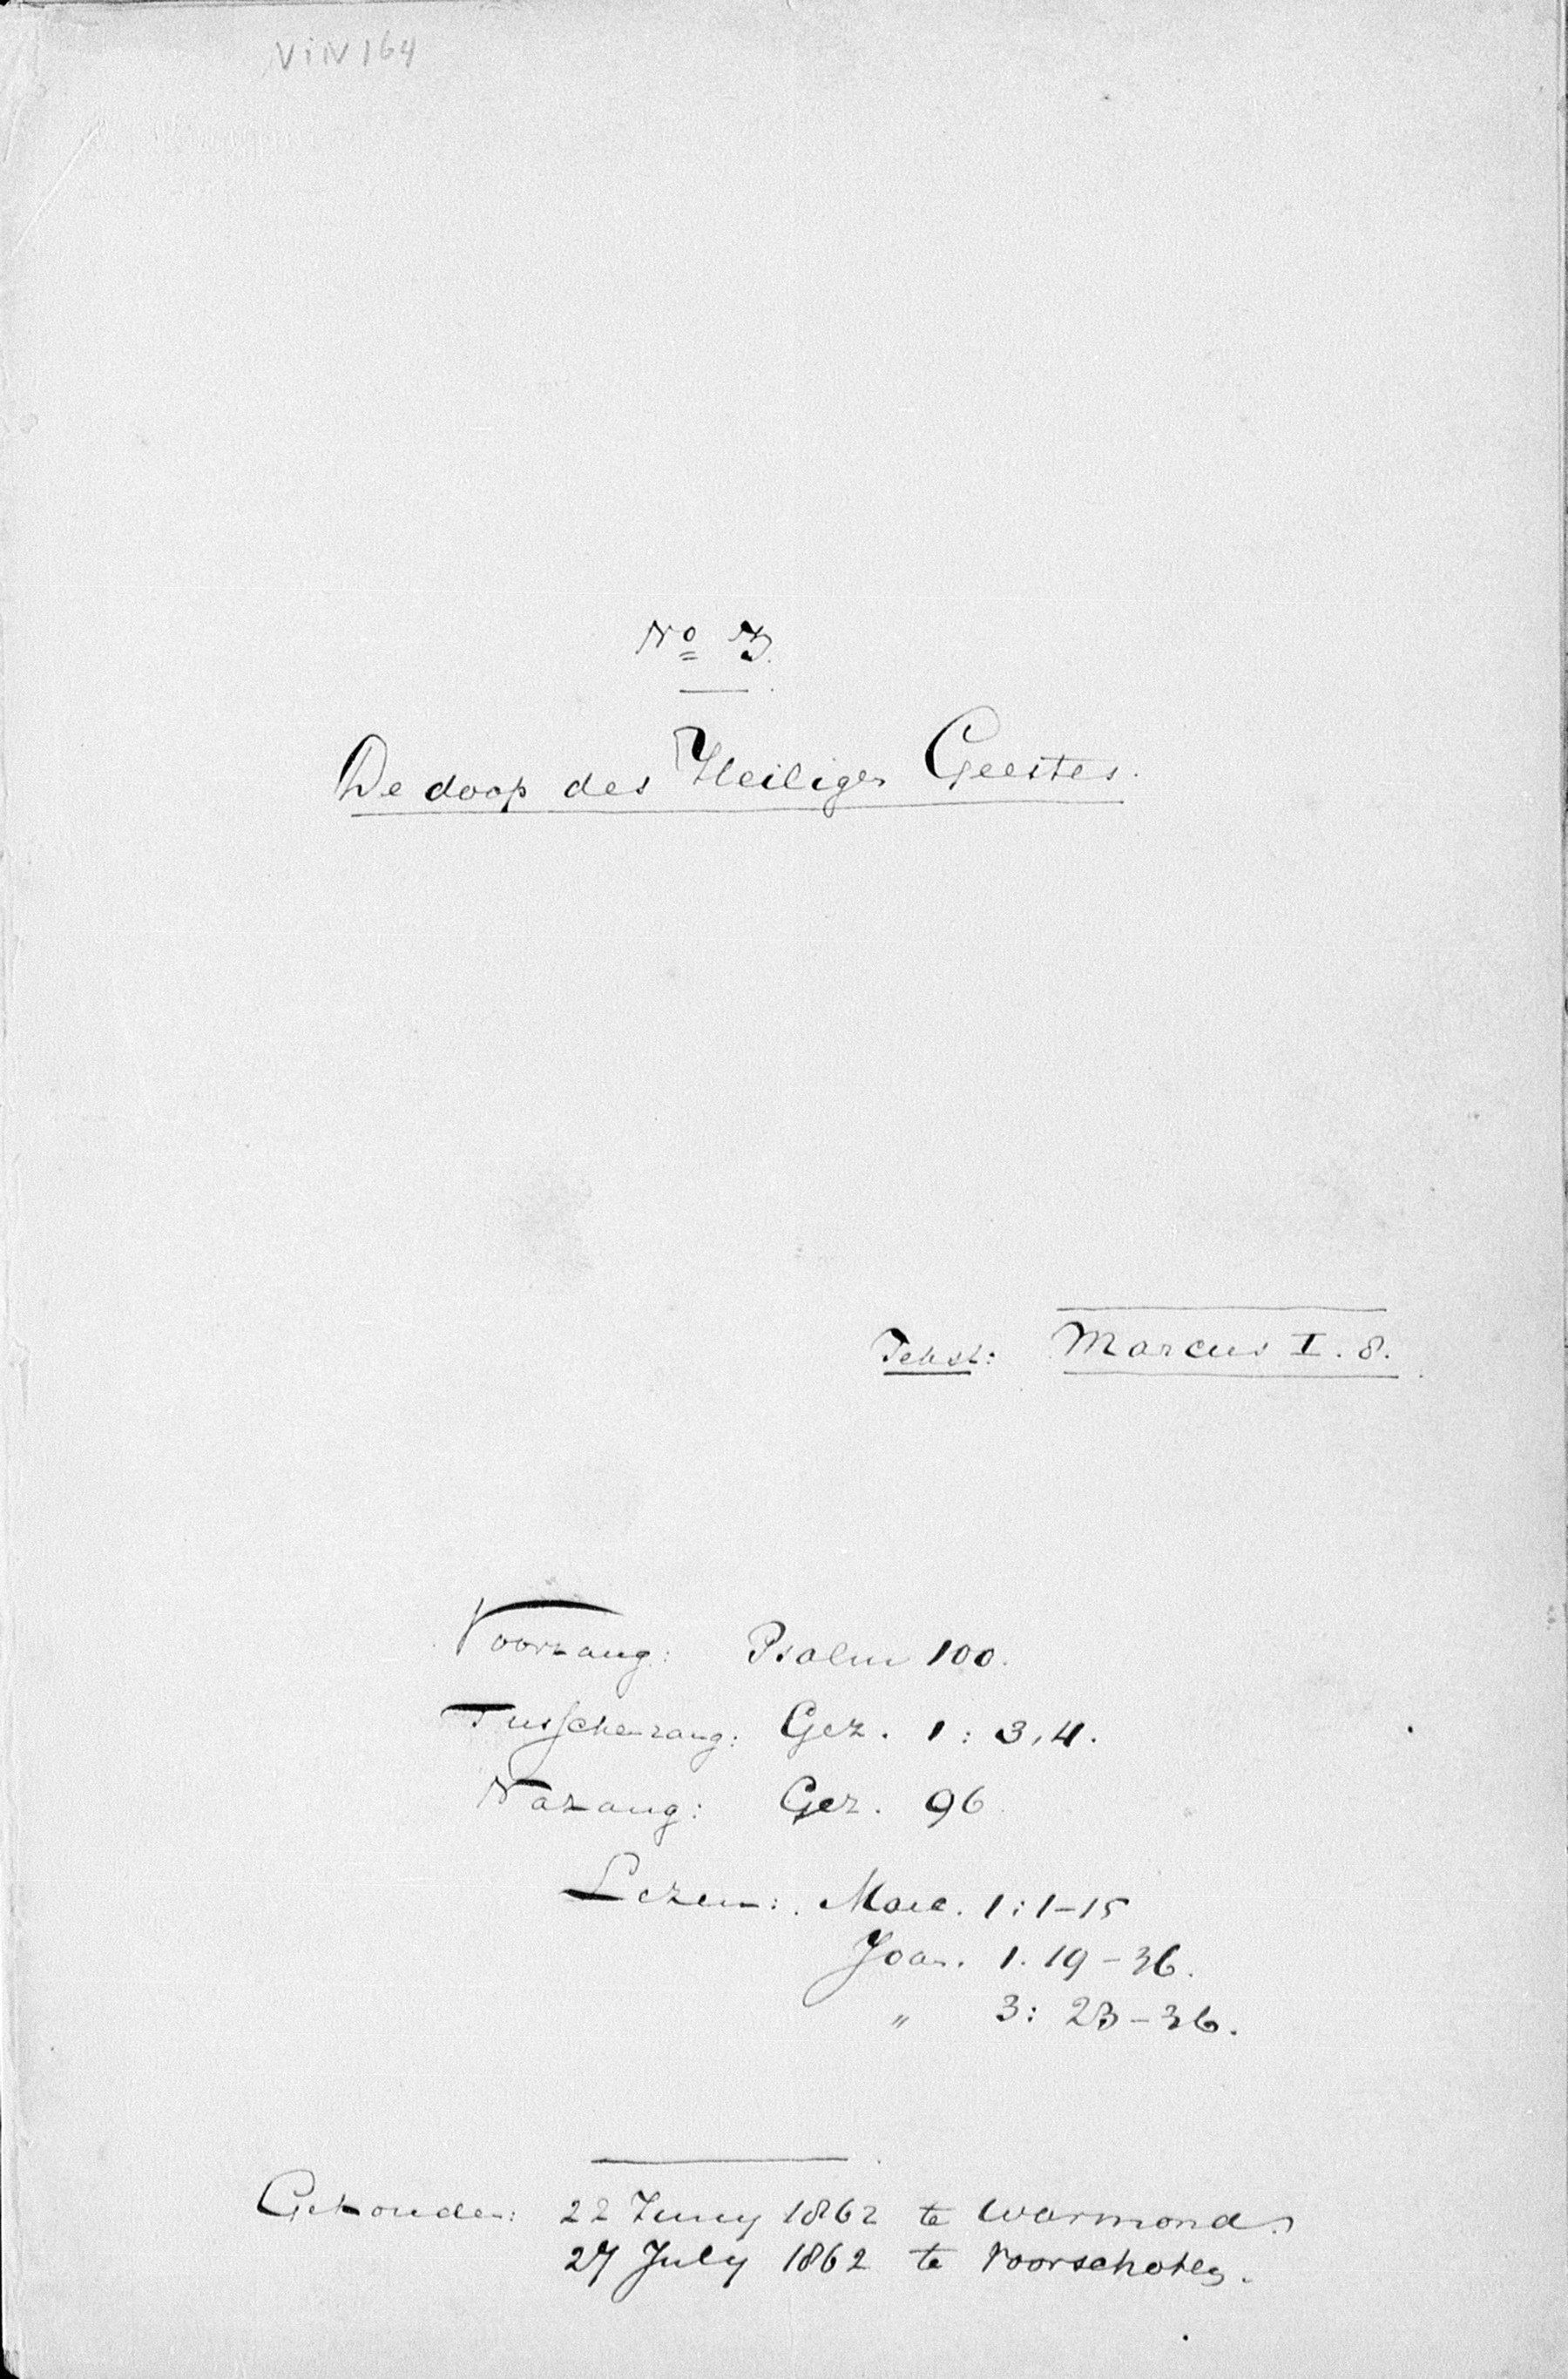 ViN 164
No 3.
De doop des Heiligen Geestes.
Tekst: Marcus I. 8.
Voorzang: Psalm 100.
Tusschenzang: Gez. 1 : 3, 4.
Nazang: Gez. 96
Lezen: Marc. 1 : 1-15
Joan. 1. 19 - 36.
" 3 : 23 - 36.
Gehouden: 22 Juny 1862 te Warmond.
27 July 1862 te Voorschoten.